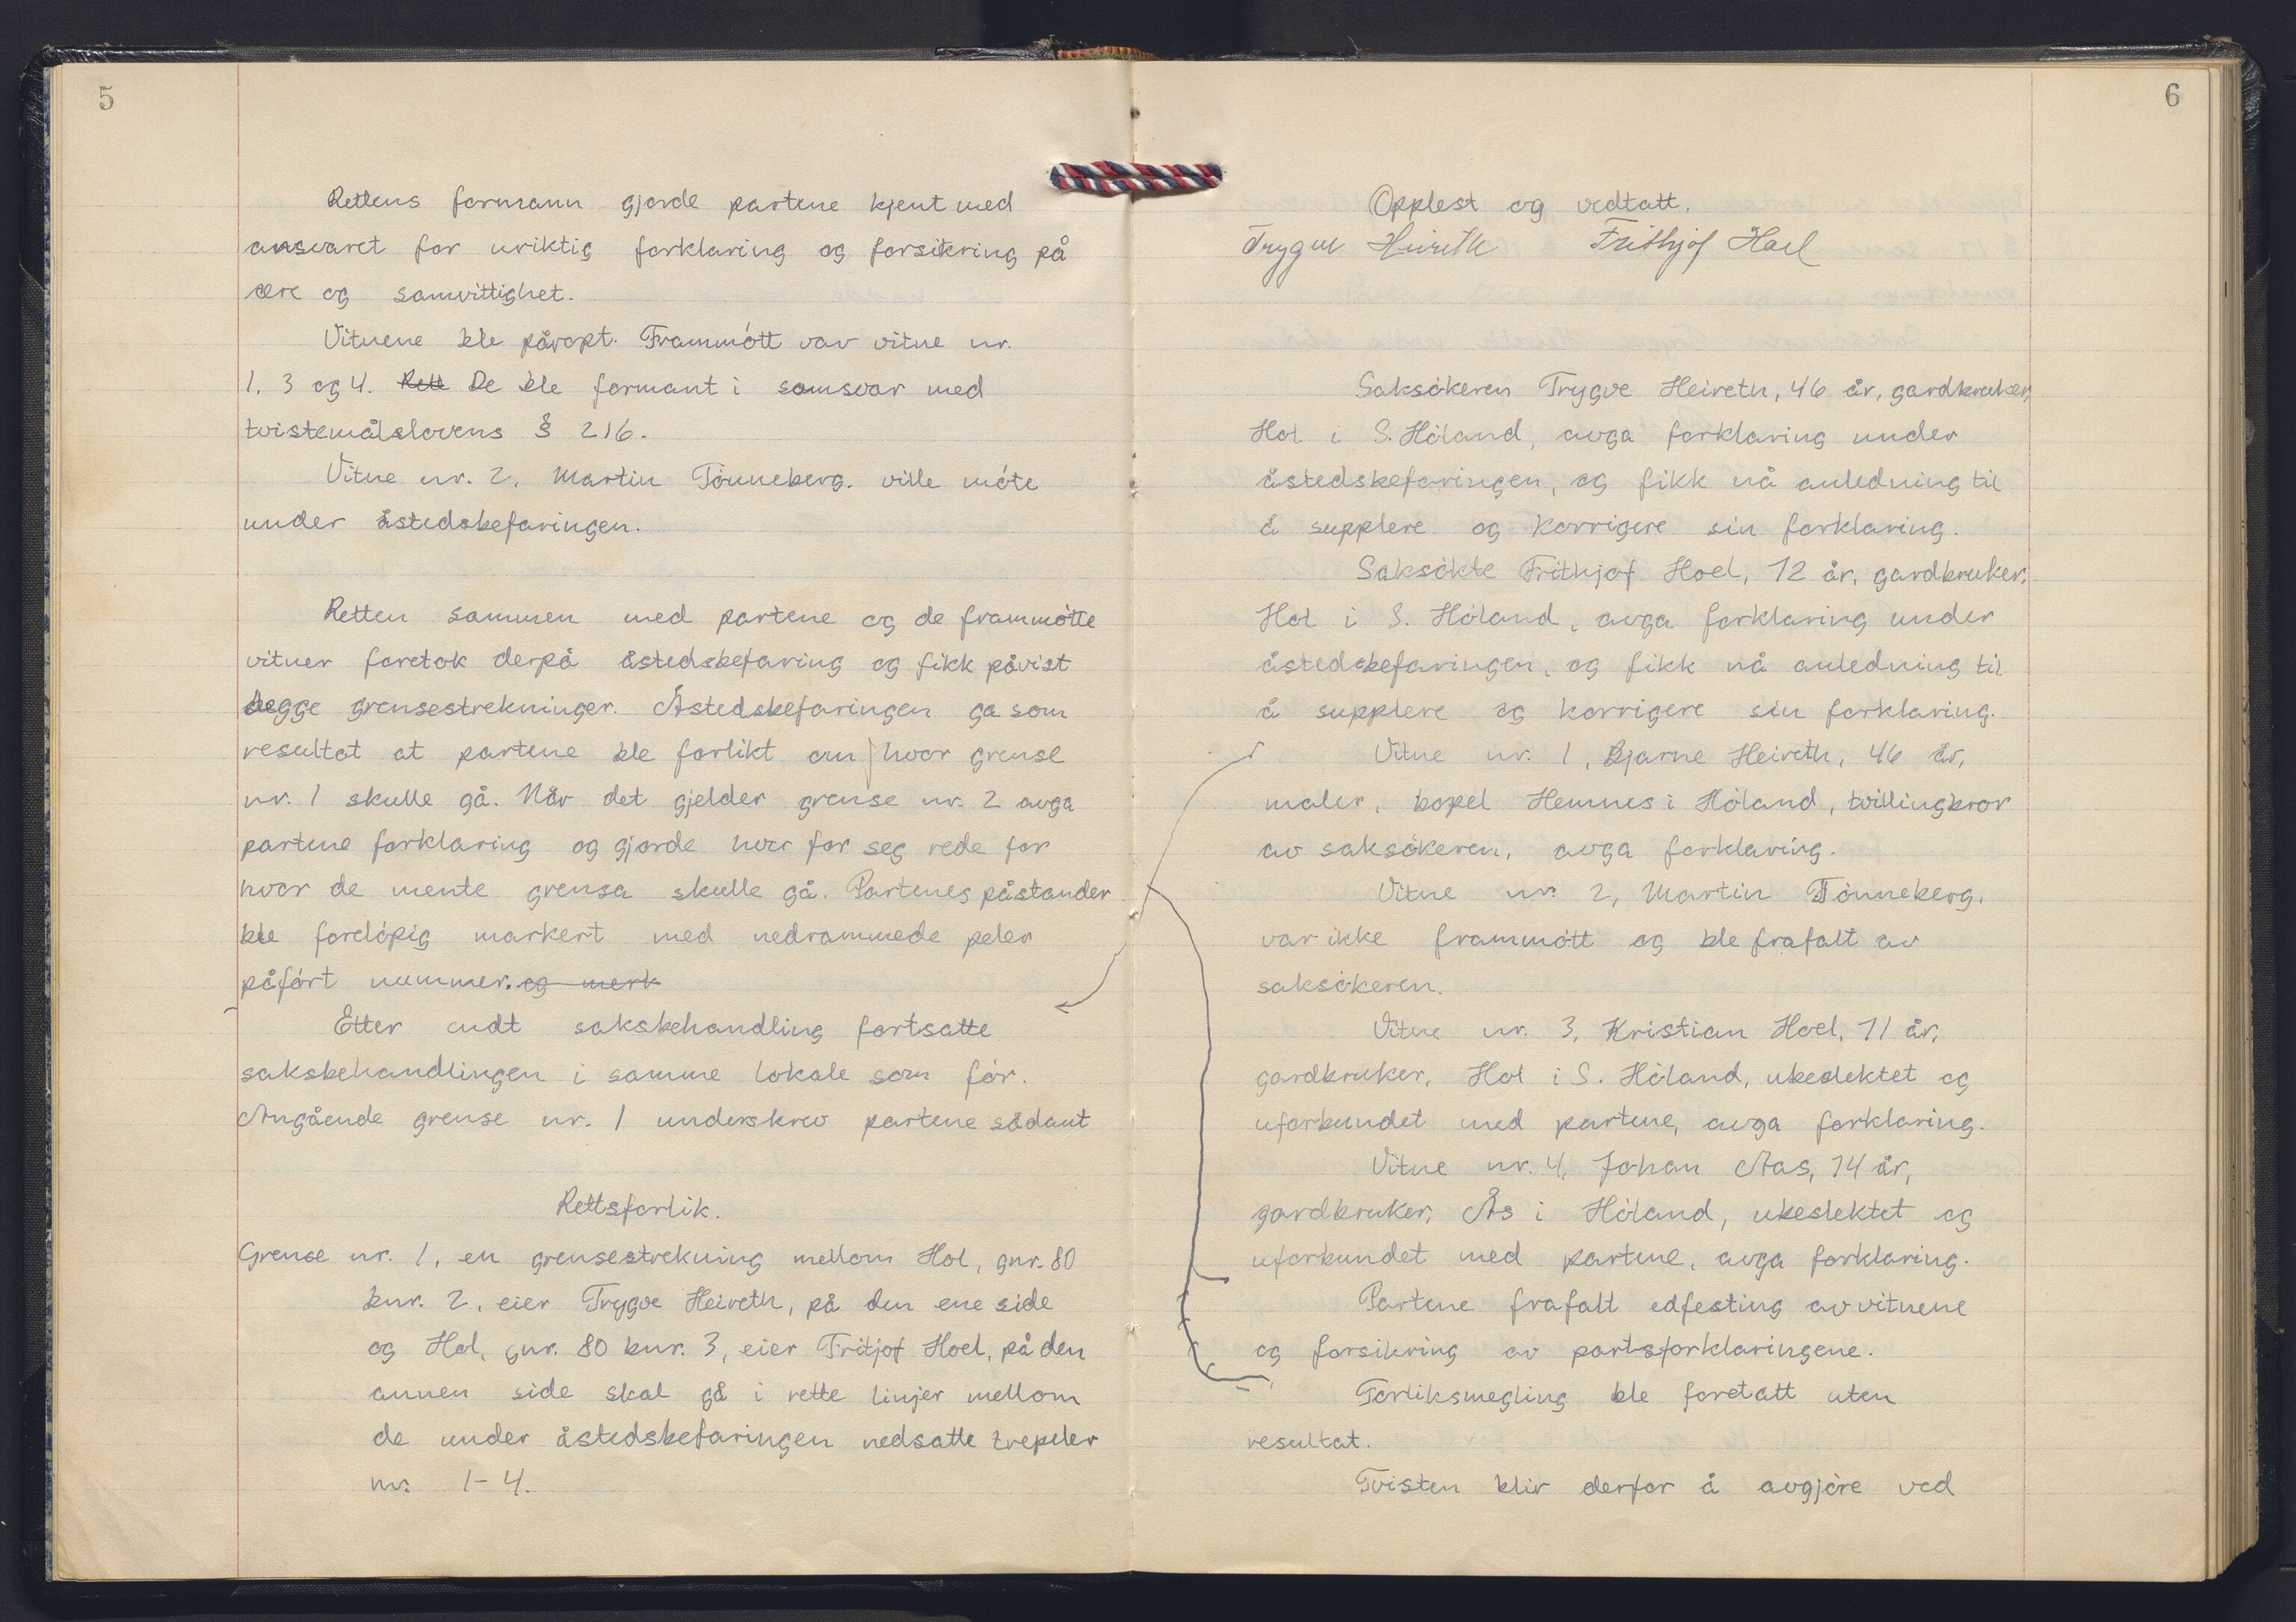 5
Rettens formann gjorde partene kjent med
ansvaret for uriktig forklaring og forsikring på
ære og samvittighet.
Vitnene ble påropt. Frammött var vitne nr.
1, 3 og 4. Rett De ble formant i samsvar med
tvistemålslovens § 216.
Vitne nr. 2, Martin Tönneberg. ville möte
under åstedsbefaringen.
Retten sammen med partene og de frammötte
vitner foretok derpå åstedsbefaring og fikk påvist
begge grensestrekninger. Åstedsbefaringen ga som
resultat at partene ble forlikt om hvor grense
nr. 1 skulle gå. Når det gjelder grense nr. 2 avga
partene forklaring og gjorde hver for seg rede for
hvor de mente grensa skulle gå. Partenes påstander
ble forelöpig markert med nedrammede peler
påfört nummer. og merk
Etter endt saksbehandling fortsatte
saksbehandlingen i samme lokale som för.
Angående grense nr. 1 underskrev partene sådant
Rettsforlik.
Grense nr. 1, en grensestrekning mellom Hol, gnr. 80
bnr. 2, eier Trygve Heireth, på den ene side
og Hol, gnr. 80 bnr. 3, eier Fritjof Hoel, på den
annen side skal gå i rette linjer mellom
de under åstedsbefaringen nedsatte trepeler
nr. 1-4.
6
Opplest og vedtatt.
Trygve Heireth Frithjof Hoel
Saksökeren Trygve Heireth, 46 år, gardbruker,
Hol i S. Höland, avga forklaring under
åstedsbefaringen, og fikk nå anledning til
å supplere og korrigere sin forklaring.
Saksökte Frithjof Hoel, 72 år, gardbruker,
Hol i S. Höland, avga forklaring under
åstedsbefaringen, og fikk nå anledning til
å supplere og korrigere sin forklaring.
Vitne nr. 1, Bjarne Heireth, 46 år,
maler, bopel Hemnes i Höland, tvillingbror
av saksökeren, avga forklaring.
Vitne nr. 2, Martin Tönneberg,
var ikke frammött og ble frafalt av
saksökeren.
Vitne nr. 3, Kristian Hoel, 71 år,
gardbruker, Hol i S. Höland, ubeslektet og
uforbundet med partene, avga forklaring.
Vitne nr. 4, Johan Aas, 74 år,
gardbruker, Ås i Höland, ubeslektet og
uforbundet med partene, avga forklaring.
Partene frafalt edfesting av vitnene
og forsikring av partsforklaringene.
Forliksmegling ble foretatt uten
resultat.
Tvisten blir derfor å avgjöre ved